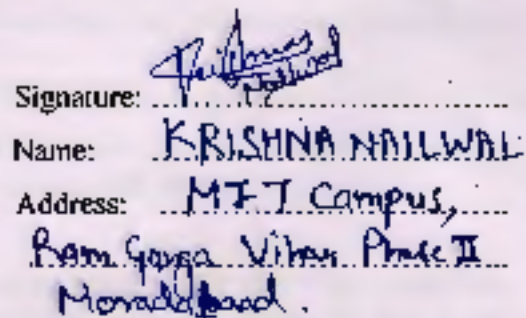 Signature:
Name: KRISHNA NAILWAL
Address: MIT Campus,
Ram Ganga Vihar Phase II
Moradabad.